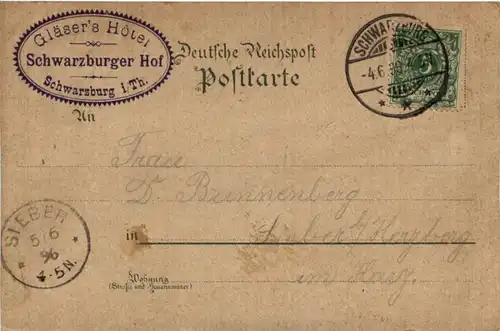 Gläser's Hôtel
Schwarzburger Hof
Schwarzburg i. Th.
Deutsche Reichspost
Postkarte
SCHWARZBURG
-4.6.96
An
Frau
Dr. Brunnenberg
SIEBER
5/6
96
4-5N.
in Sieber b/ Herzberg
im Harz.
Wohnung
(Straße und Hausnummer)